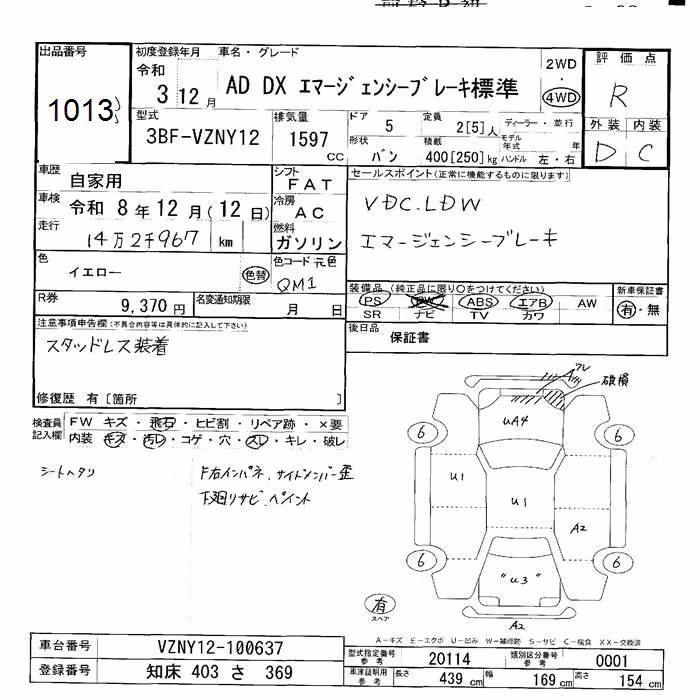 出品番号
1013
初度登録年月
令和
3 12 月
車名・グレード
AD DX エマージェンシーブレーキ標準
2WD
・
4WD
評価点
R
外装 内装
D C
型式
3BF-VZNY12
排気量
1597
CC
ドア
5
形状
バン
定員
2[5]人
積載
400[250]kg
ディーラー・並行
モデル年式 年
ハンドル 左・右
車歴
自家用
車検
令和 8年12月(12日)
走行
14万2千967 km
シフト
FAT
冷房
AC
燃料
ガソリン
セールスポイント(正常に機能するものに限ります)
VDC.LDW
エマージェンシーブレーキ
色
イエロー
色替
色コード 元色
QM1
装備品 (純正品に限り○をつけてください)
PS PW ABS エアB AW
SR ナビ TV カワ
新車保証書
有・無
R券
9,370円
名変通知期限
月 日
後日品
保証書
注意事項申告欄(不具合内容等は具体的に記入して下さい)
スタッドレス装着
修復歴 有 [箇所 ]
検査員記入欄
FW キズ・飛石・ヒビ割・リペア跡・×要
内装 キズ・汚レ・コゲ・穴・スレ・キレ・破レ
シートヘタリ
F右インパネ、サイドメンバー歪
下廻リサビ、ペイント
フレ
破損
UA4
6
6
U1
U1
A2
6
6
"U3"
有
スペア
A2
A-キズ E-エクボ U-凹み W-補修跡 S-サビ C-腐食 XX-交換済
車台番号
VZNY12-100637
登録番号
知床 403 さ 369
型式指定番号
参考
20114
類別区分番号
参考
0001
車庫証明用
参考
長さ 439 cm 幅 169 cm 高さ 154 cm